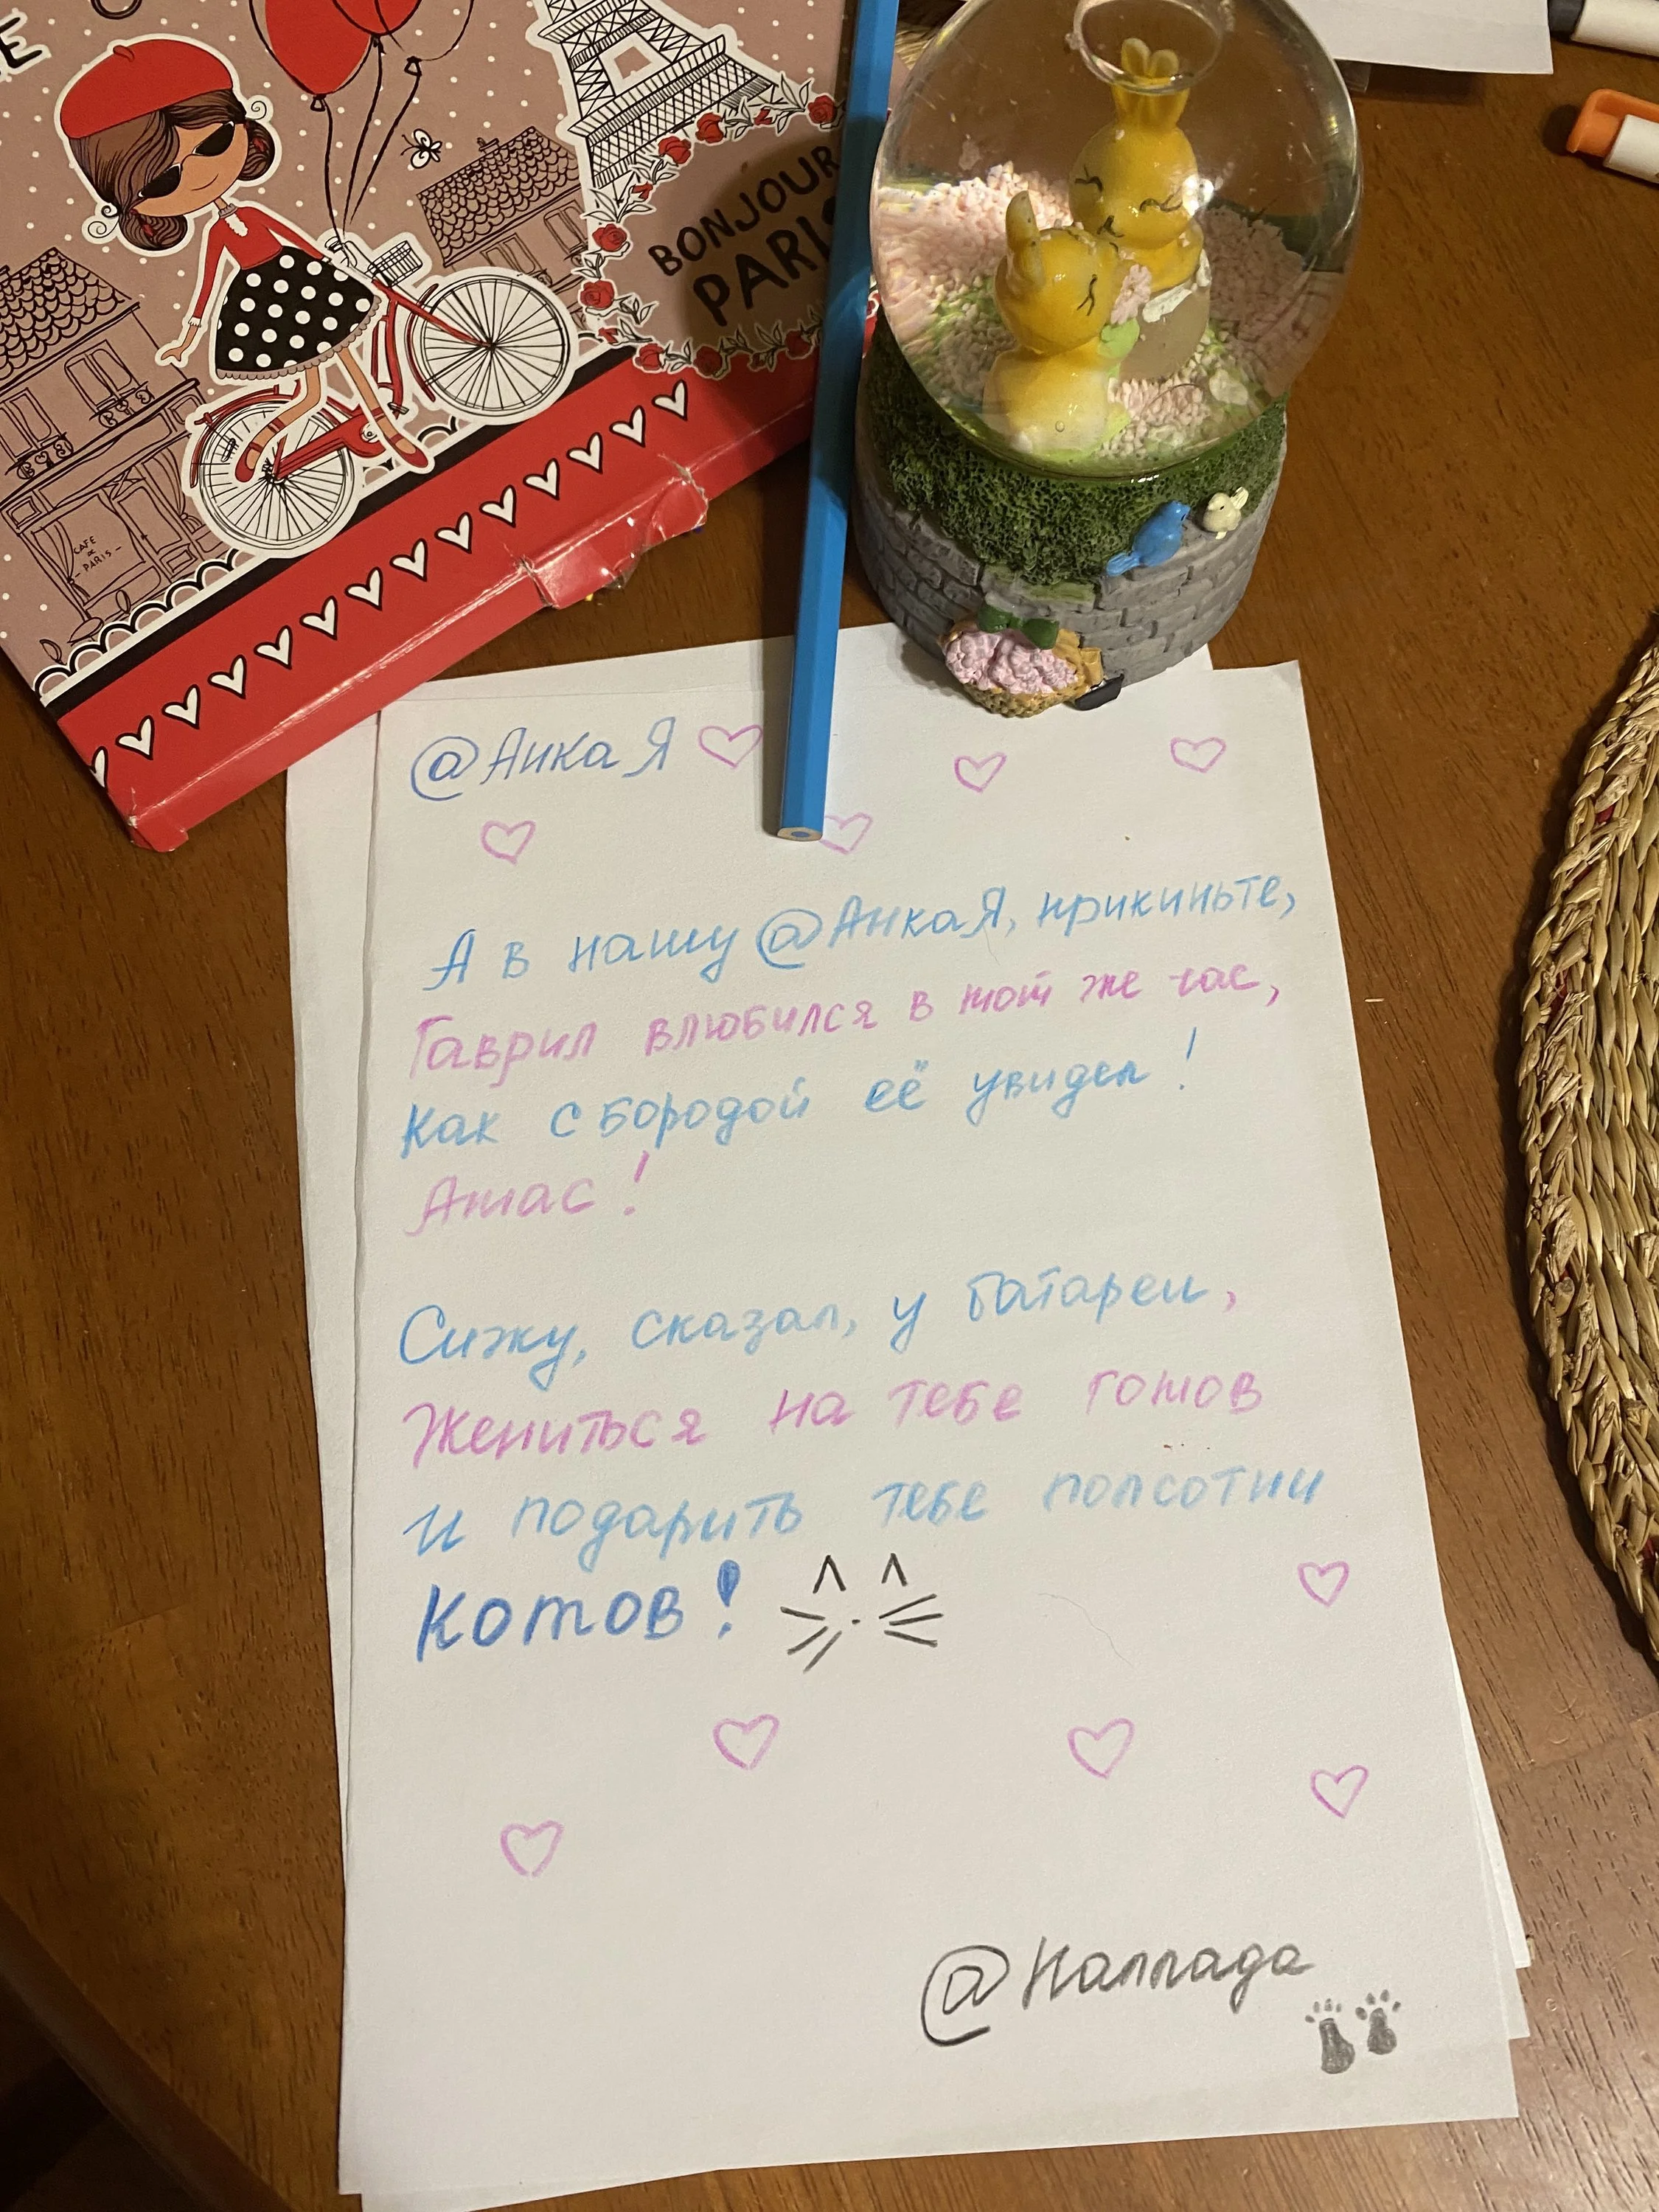 BONJOUR
PARIS
CAFE
DE
- PARIS -
@АнкаЯ
А в нашу @АнкаЯ, прикиньте,
Гаврил влюбился в тот же час,
Как с бородой её увидел!
Атас!
Сижу, сказал, у батареи,
Жениться на тебе готов
и подарить тебе полсотни
котов!
@Наллада